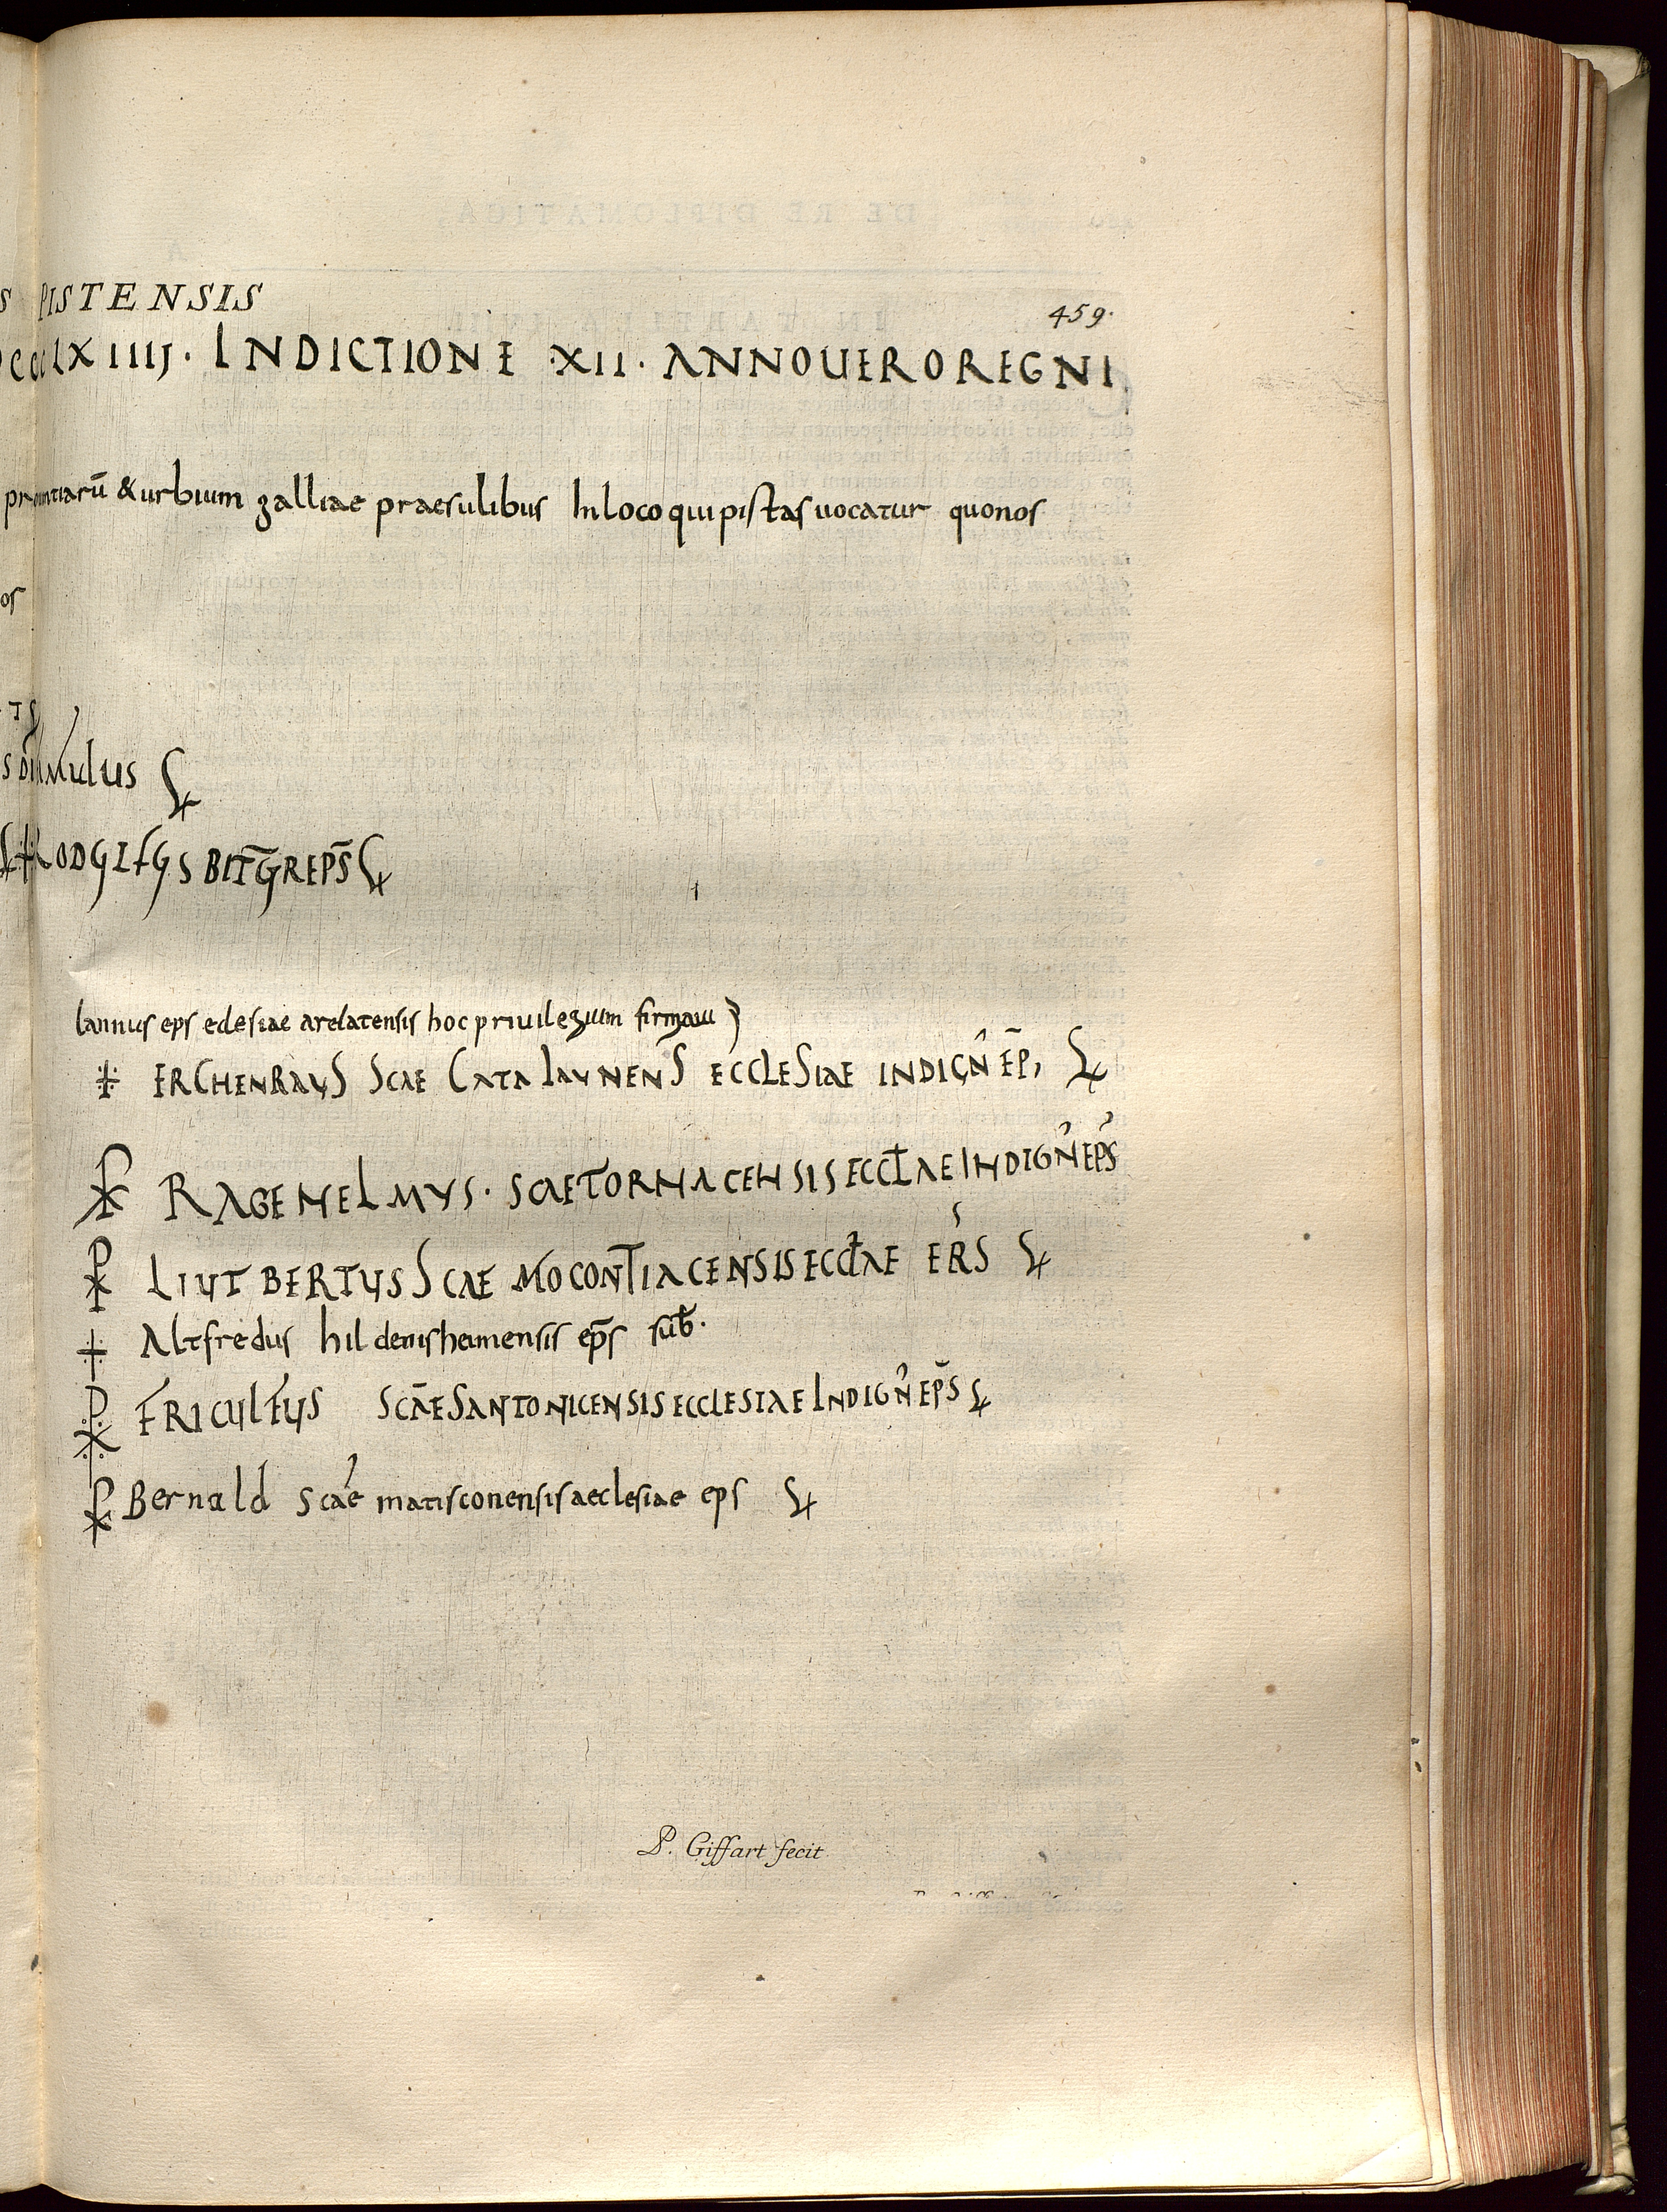 S PISTENSIS
459.
CCCLXIIIJ. INDICTIONE .XII. ANNOUERO REGNI
prouintiarū & urbium galliae praesulibus In loco qui pistas uocatur quo nos
os
TS
mulus
RODULFUS BITG̅R EPS̅
lannus eps eclesiae arelatensis hoc priuilegium firmaui
ERCHENRAUS SCAE CATALAUNENS ECCLESIAE INDIGN̄ EP̄,
RAGENELMUS. SCAE TORNACENSIS ECCLAE INDIGN EPS
LIUTBERTUS SCAE MOCONTIACENSIS ECCLAE EPS
Altfredus hildenisheimensis ep̄s sub.
FRICULFUS SCĀE SANTONICENSIS ECCLESIAE INDIGN EP̄S
Bernald scae matisconensis aeclesiae eps
P. Giffart fecit